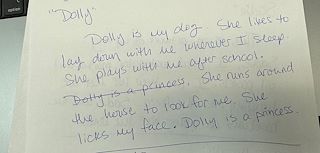 "Dolly"
Dolly is my dog She likes to
lay down with me whenever I sleep.
She plays with me after school.
Dolly is a princess. She runs around
the house to look for me. She
licks my face. Dolly is a princess.